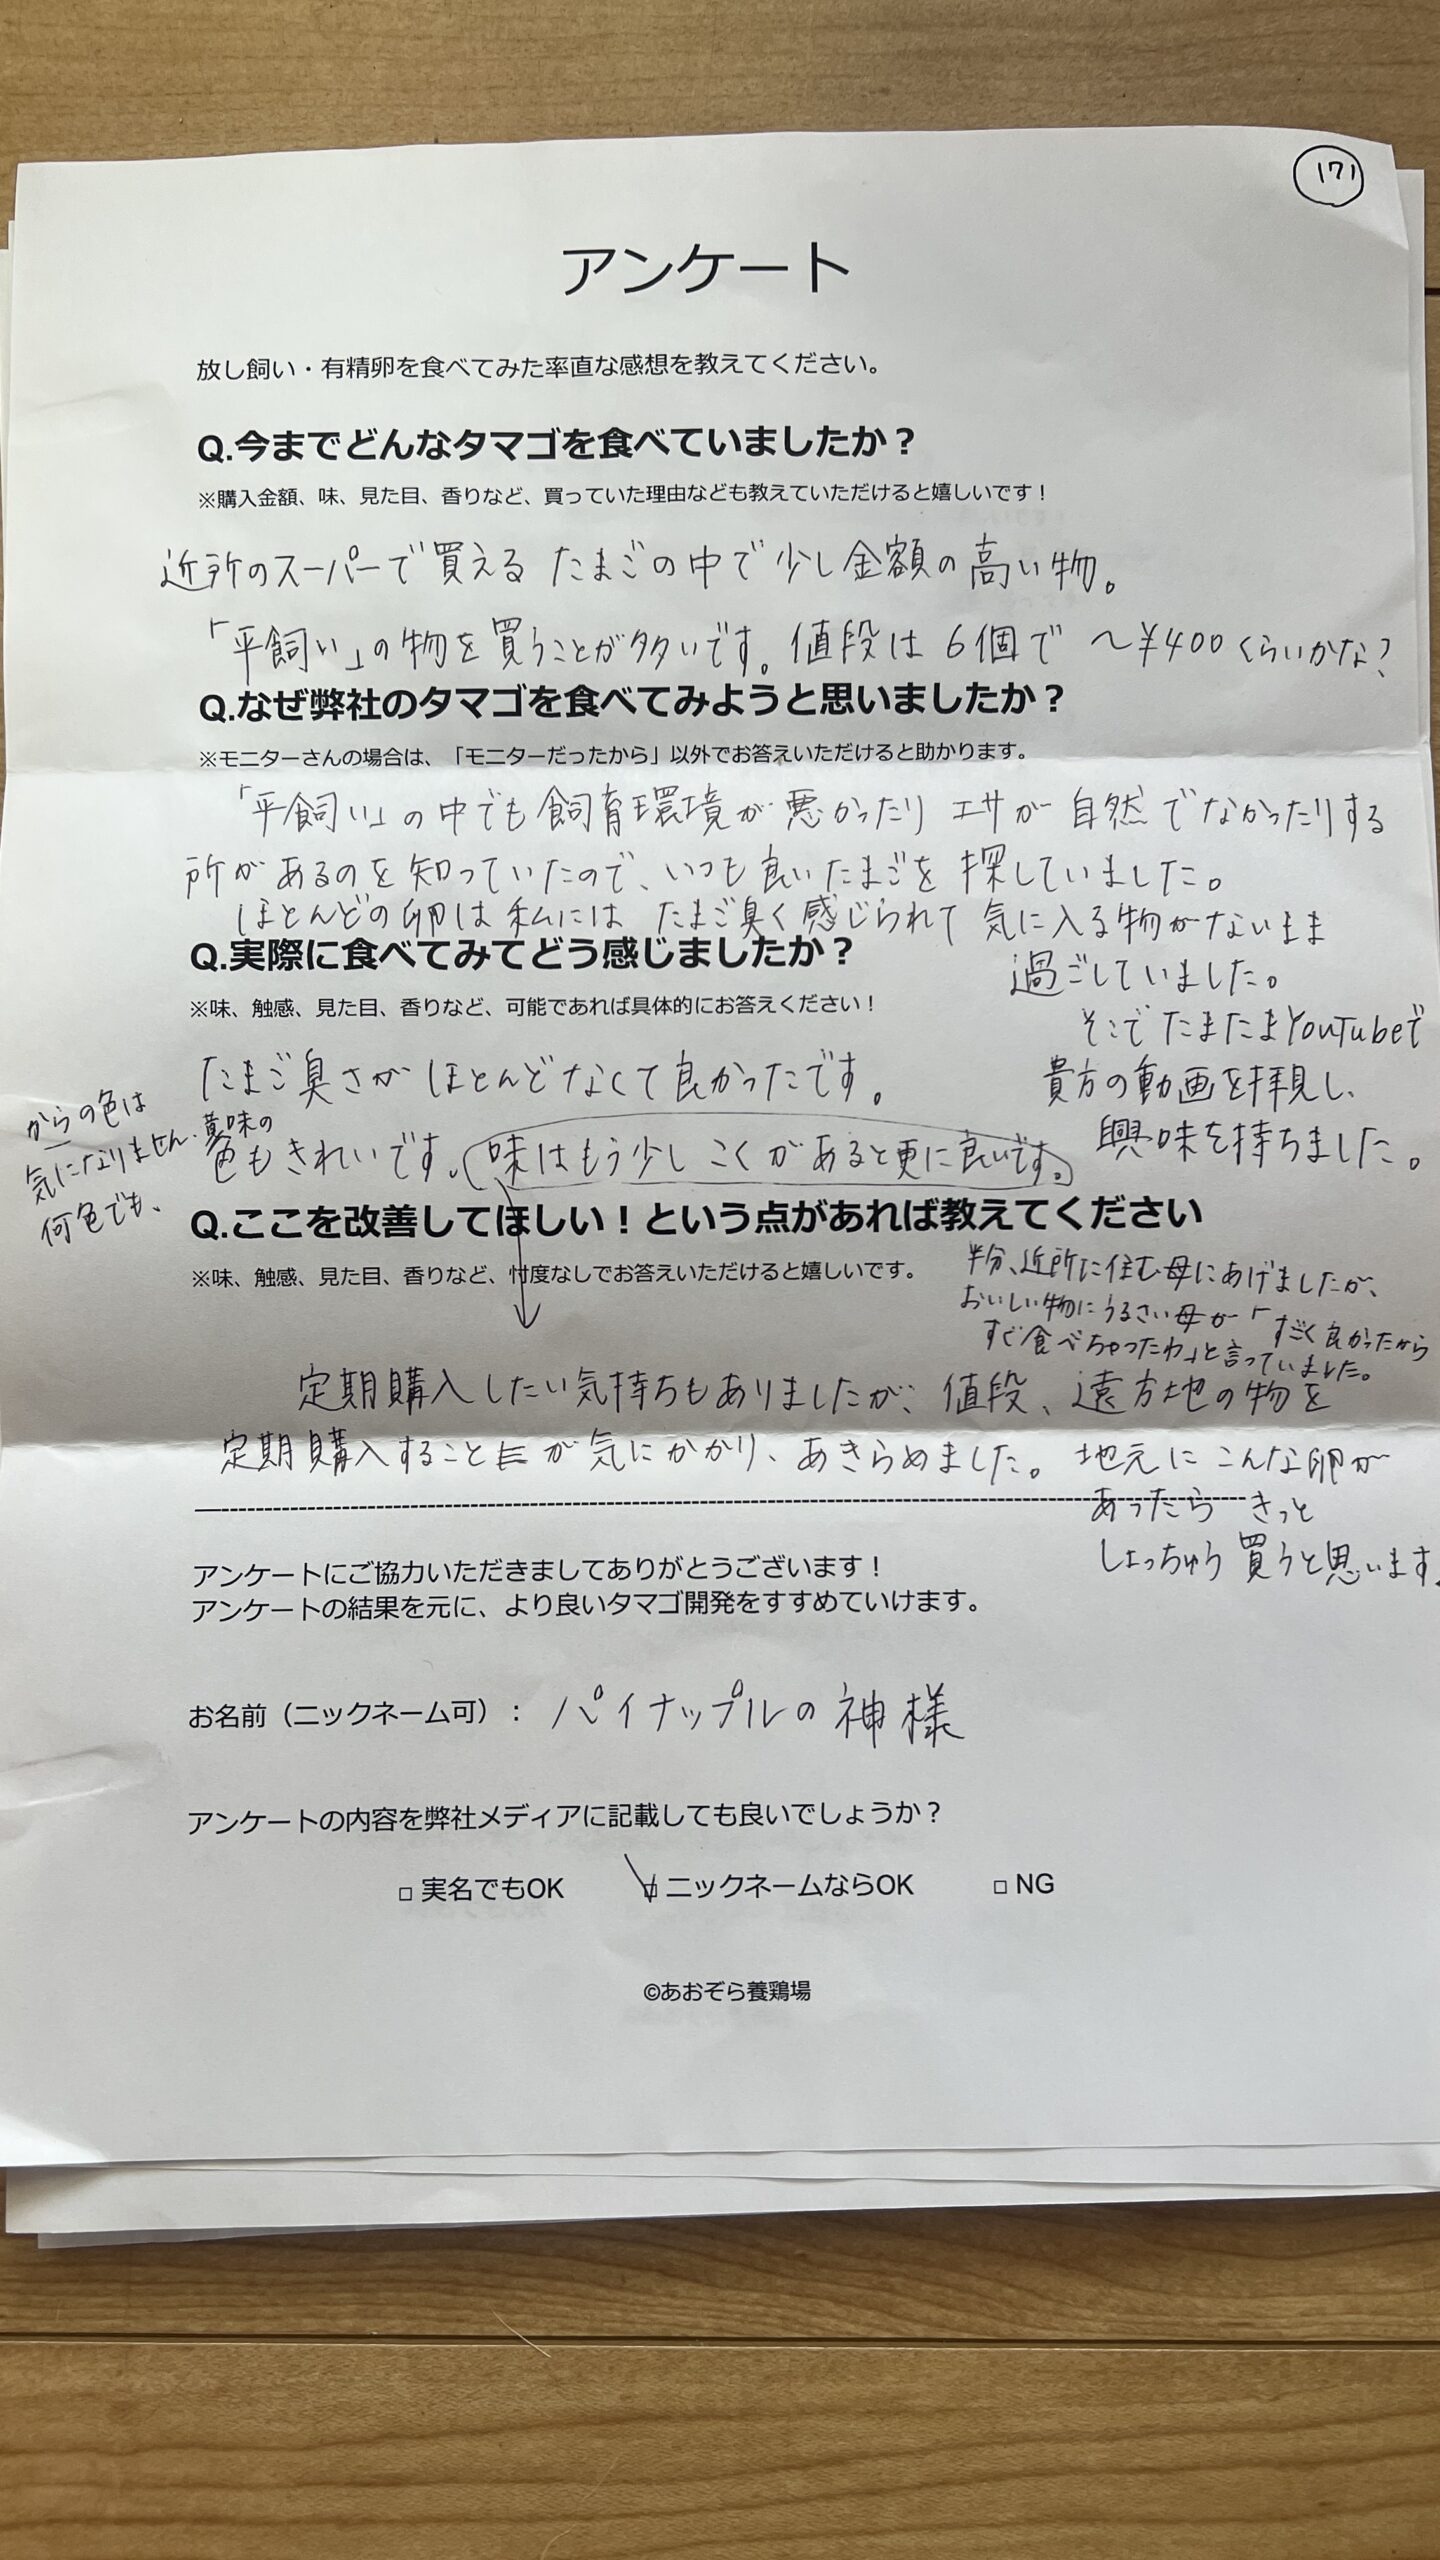 171
アンケート
放し飼い・有精卵を食べてみた率直な感想を教えてください。
Q.今までどんなタマゴを食べていましたか？
※購入金額、味、見た目、香りなど、買っていた理由なども教えていただけると嬉しいです！
近所のスーパーで買える たまごの中で少し金額の高い物。
「平飼い」の物を買うことが多いです。値段は6個で 〜¥400くらいかな?
Q.なぜ弊社のタマゴを食べてみようと思いましたか？
※モニターさんの場合は、「モニターだったから」以外でお答えいただけると助かります。
「平飼い」の中でも飼育環境が悪かったり エサが自然でなかったりする
所があるのを知っていたので、いつも良いたまごを探していました。
ほとんどの卵は私には たまご臭く感じられて 気に入る物がないまま
過ごしていました。
そこで たまたまYouTubeで
貴方の動画を拝見し、
興味を持ちました。
Q.実際に食べてみてどう感じましたか？
※味、触感、見た目、香りなど、可能であれば具体的にお答えください！
たまご臭さがほとんどなくて良かったです。
黄味の
色もきれいです。味はもう少しこくがあると更に良いです。
からの色は
気になりません.
何色でも、
Q.ここを改善してほしい！という点があれば教えてください
※味、触感、見た目、香りなど、忖度なしでお答えいただけると嬉しいです。
半分、近所に住む母にあげましたが、
おいしい物にうるさい母が「すごく良かったから
すぐ食べちゃったわ」と言っていました。
定期購入したい気持ちもありましたが、値段、遠方地の物を
定期購入することが気にかかり、あきらめました。地元にこんな卵が
あったら きっと
しょっちゅう買うと思います。
アンケートにご協力いただきましてありがとうございます！
アンケートの結果を元に、より良いタマゴ開発をすすめていけます。
お名前（ニックネーム可）： パイナップルの神様
アンケートの内容を弊社メディアに記載しても良いでしょうか？
□ 実名でもOK □ ニックネームならOK □ NG
©あおぞら養鶏場